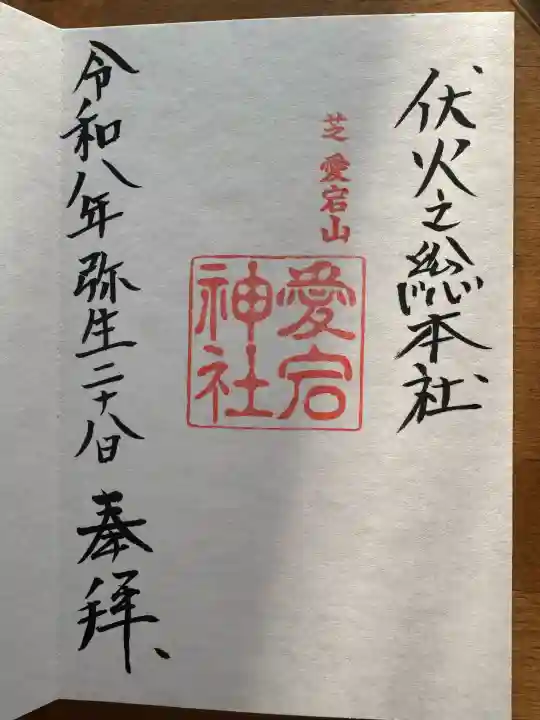 伏火之総本社
芝愛宕山
愛宕
神社
令和八年弥生二十八日 奉拝